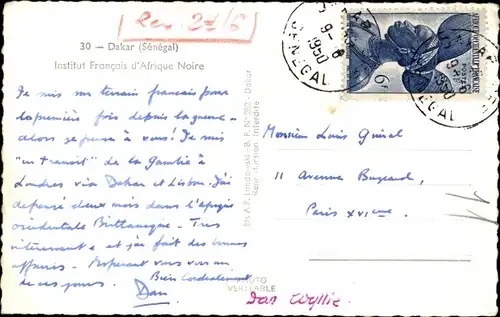 Rec 27/6
30 — Dakar (Sénégal)
Institut Français d'Afrique Noire
Je suis sur terrain français pour
la première fois depuis la guerre
alors je pense à vous! Je suis
"en transit" de la Gambie à
Londres via Dakar et Lisbon. J'ai
depensé deux mois dans l'afrique
occidentale Brittanique — Tres
interessant et j'ai fait des bonnes
affaires. Esperant vous voir un
de ces jours. Bien Cordialement
Dan
Dan Wyllie
Edit. A.P. Landowski - B. P. N° 252 - Dakar
Reproduction Interdite
PHOTO
VERITABLE
DAKAR
9-6
1950
SENEGAL
6F
Monsieur Louis Guiral
11 Avenue Bugeaud,
Paris XVIeme.
11